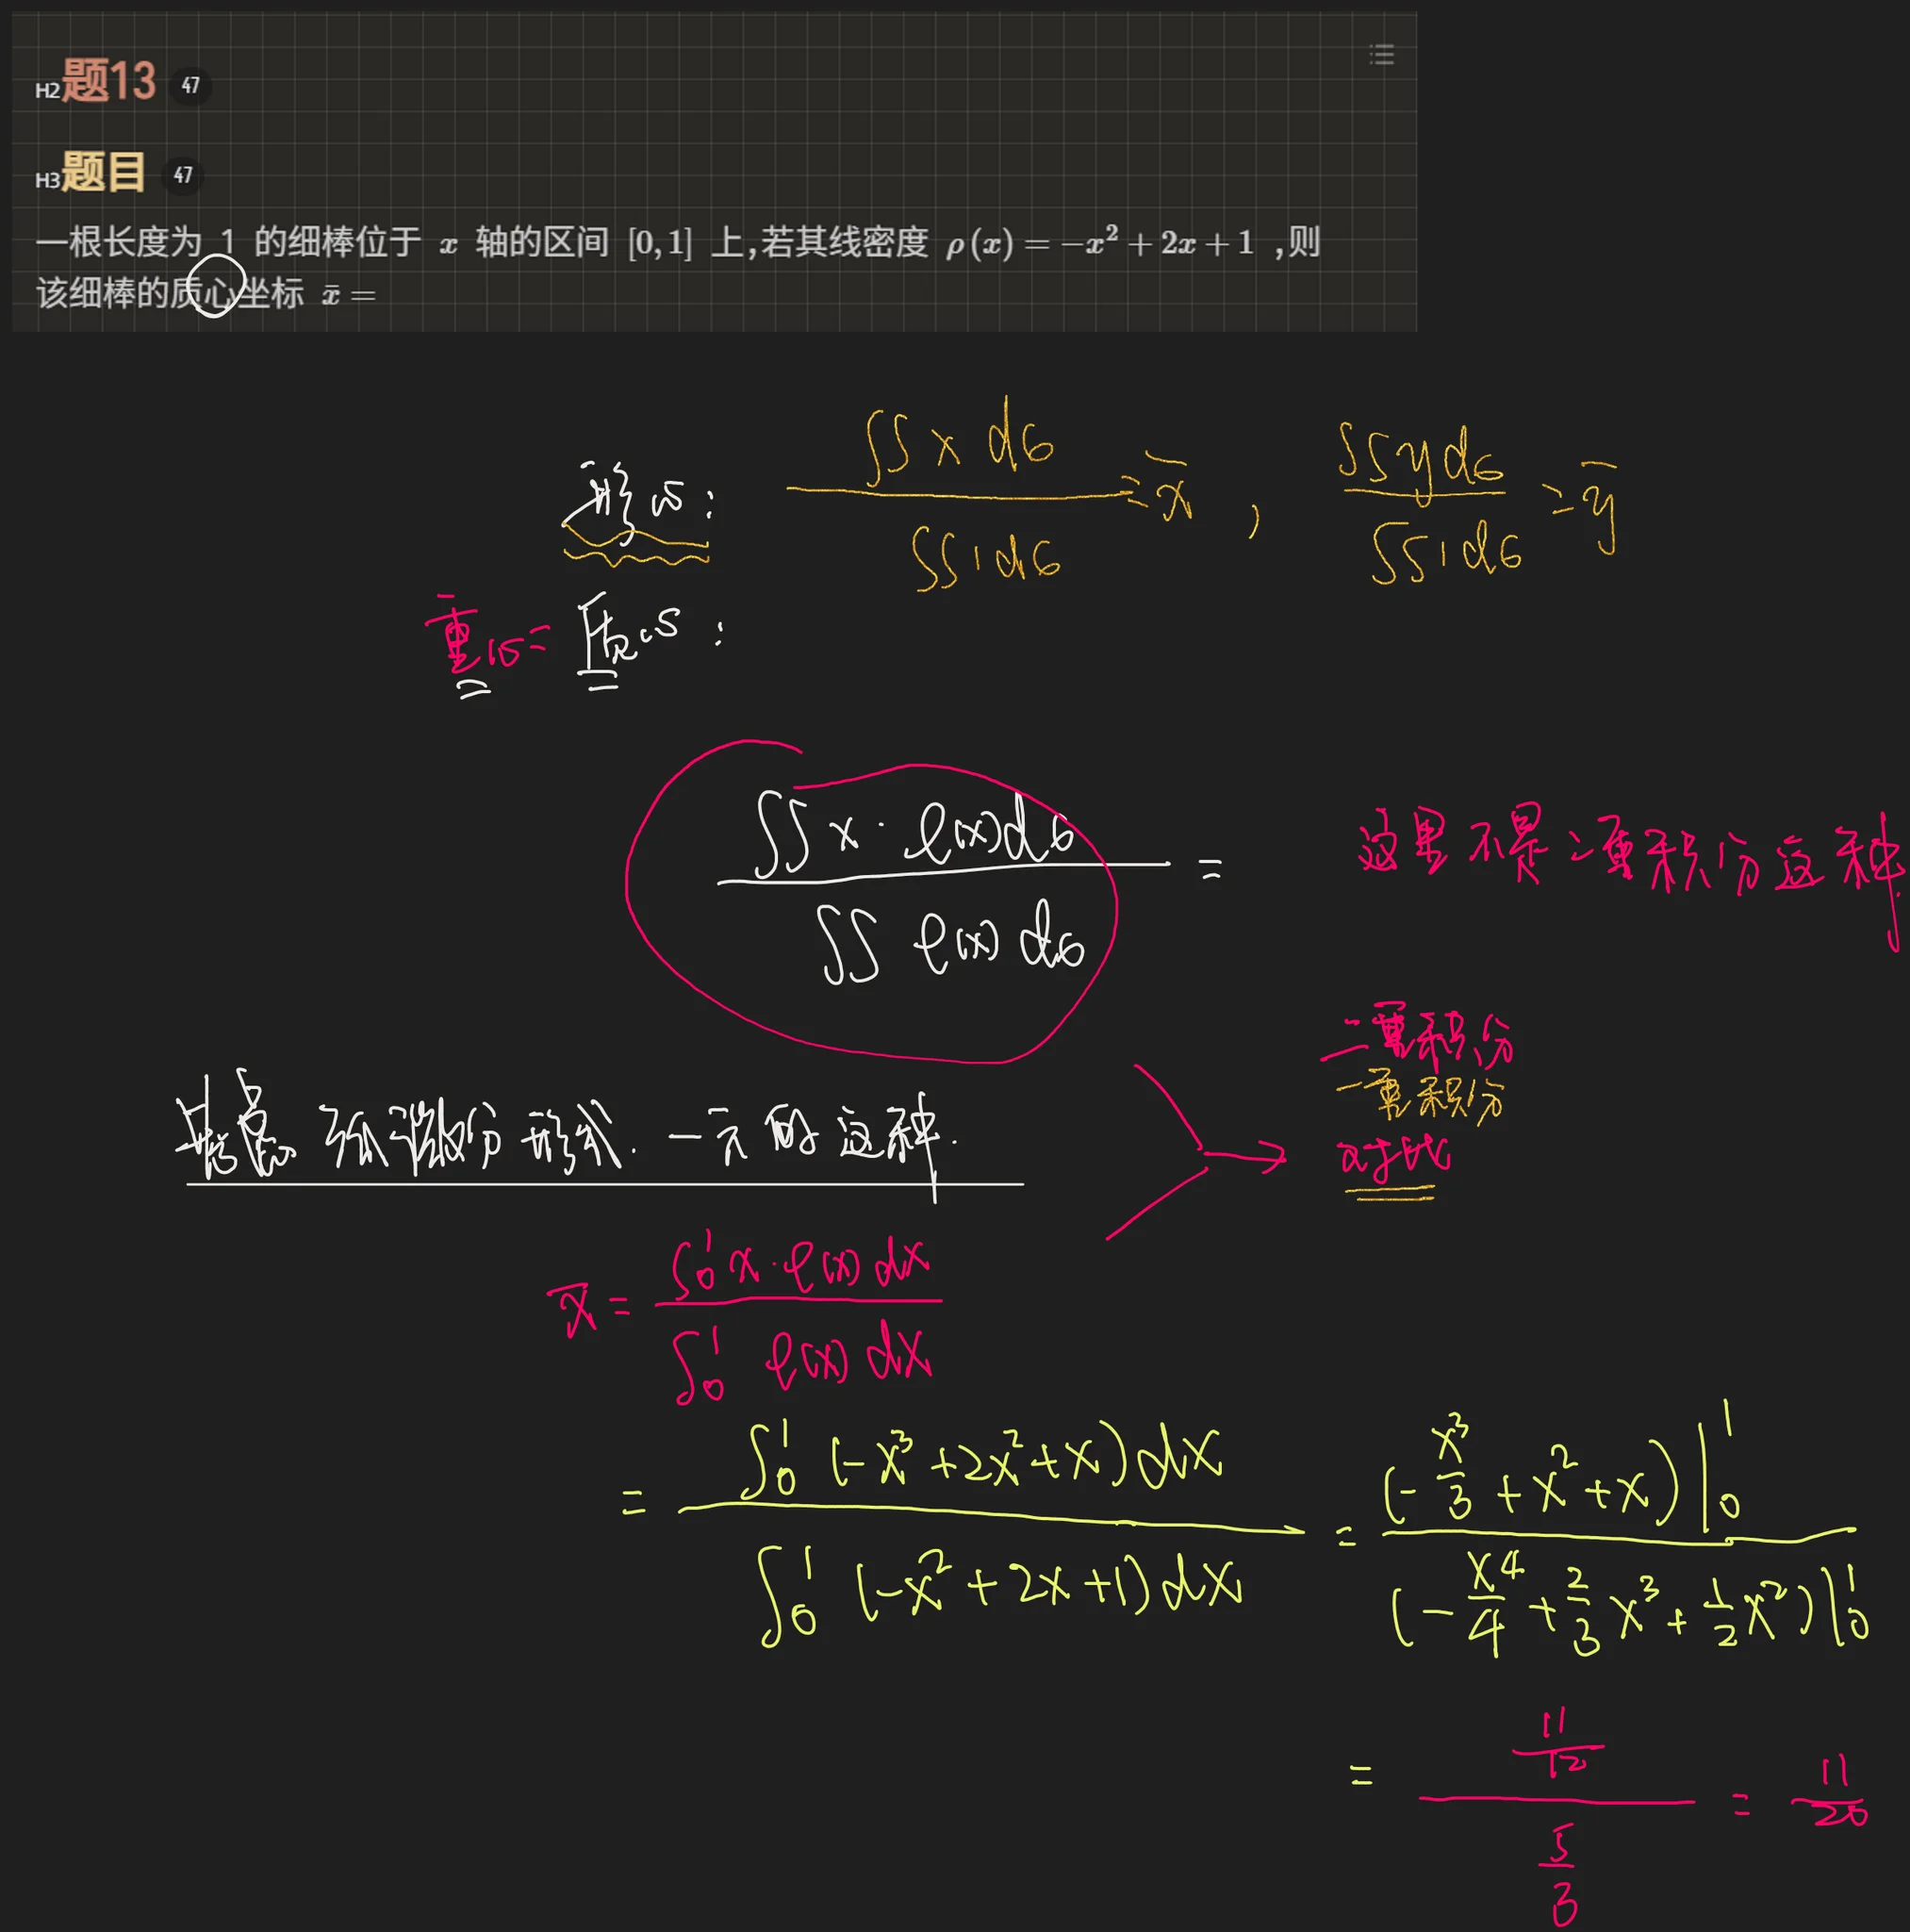 H2题13 47
H3题目 47
一根长度为 1 的细棒位于 x 轴的区间 [0,1] 上,若其线密度 ρ(x) = −x² + 2x + 1 ,则
该细棒的质心坐标 x̄ =
形心: ∬x dσ / ∬1 dσ = x̄ , ∬y dσ / ∬1 dσ = ȳ
重心= 质心:
∬x·ρ(x)dσ / ∬ρ(x)dσ =
这里不是二重积分这种
二重积分
一重积分
对比
弧微分形式. 一元的这种.
x̄ = ∫₀¹ x·ρ(x) dx / ∫₀¹ ρ(x) dx
= ∫₀¹ (-x³+2x²+x) dx / ∫₀¹ (-x²+2x+1) dx = (-x³/3 + x² + x)|₀¹ / (-x⁴/4 + 2/3 x³ + 1/2 x²)|₀¹
= (11/12) / (5/3) = 11/20